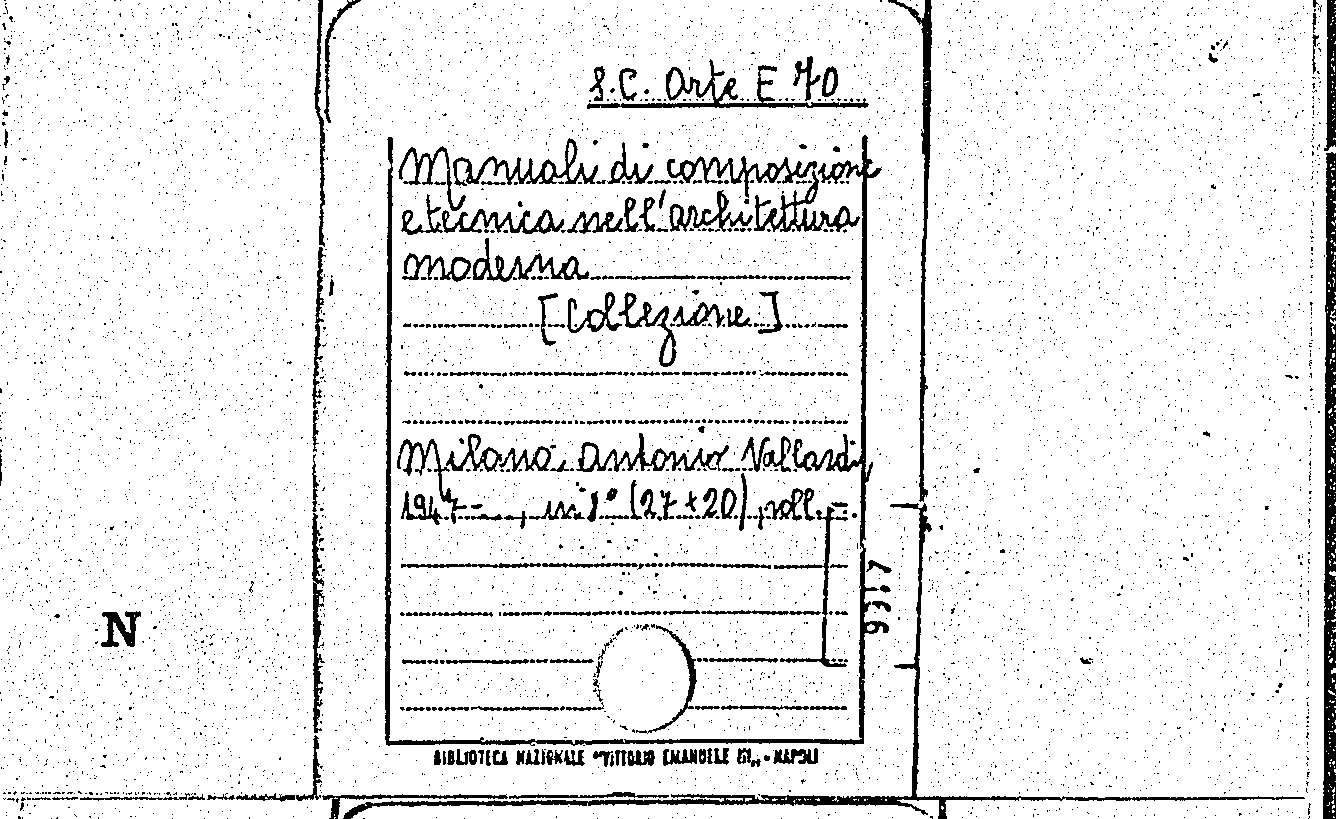 S.C. Arte E 70
Manuali di composizione
e tecnica nell'architettura
moderna
[Collezione]
Milano, Antonio Vallardi,
1947-..., in 8° (27+20), voll. -.
9317
N
BIBLIOTECA NAZIONALE "VITTORIO EMANUELE III" - NAPOLI